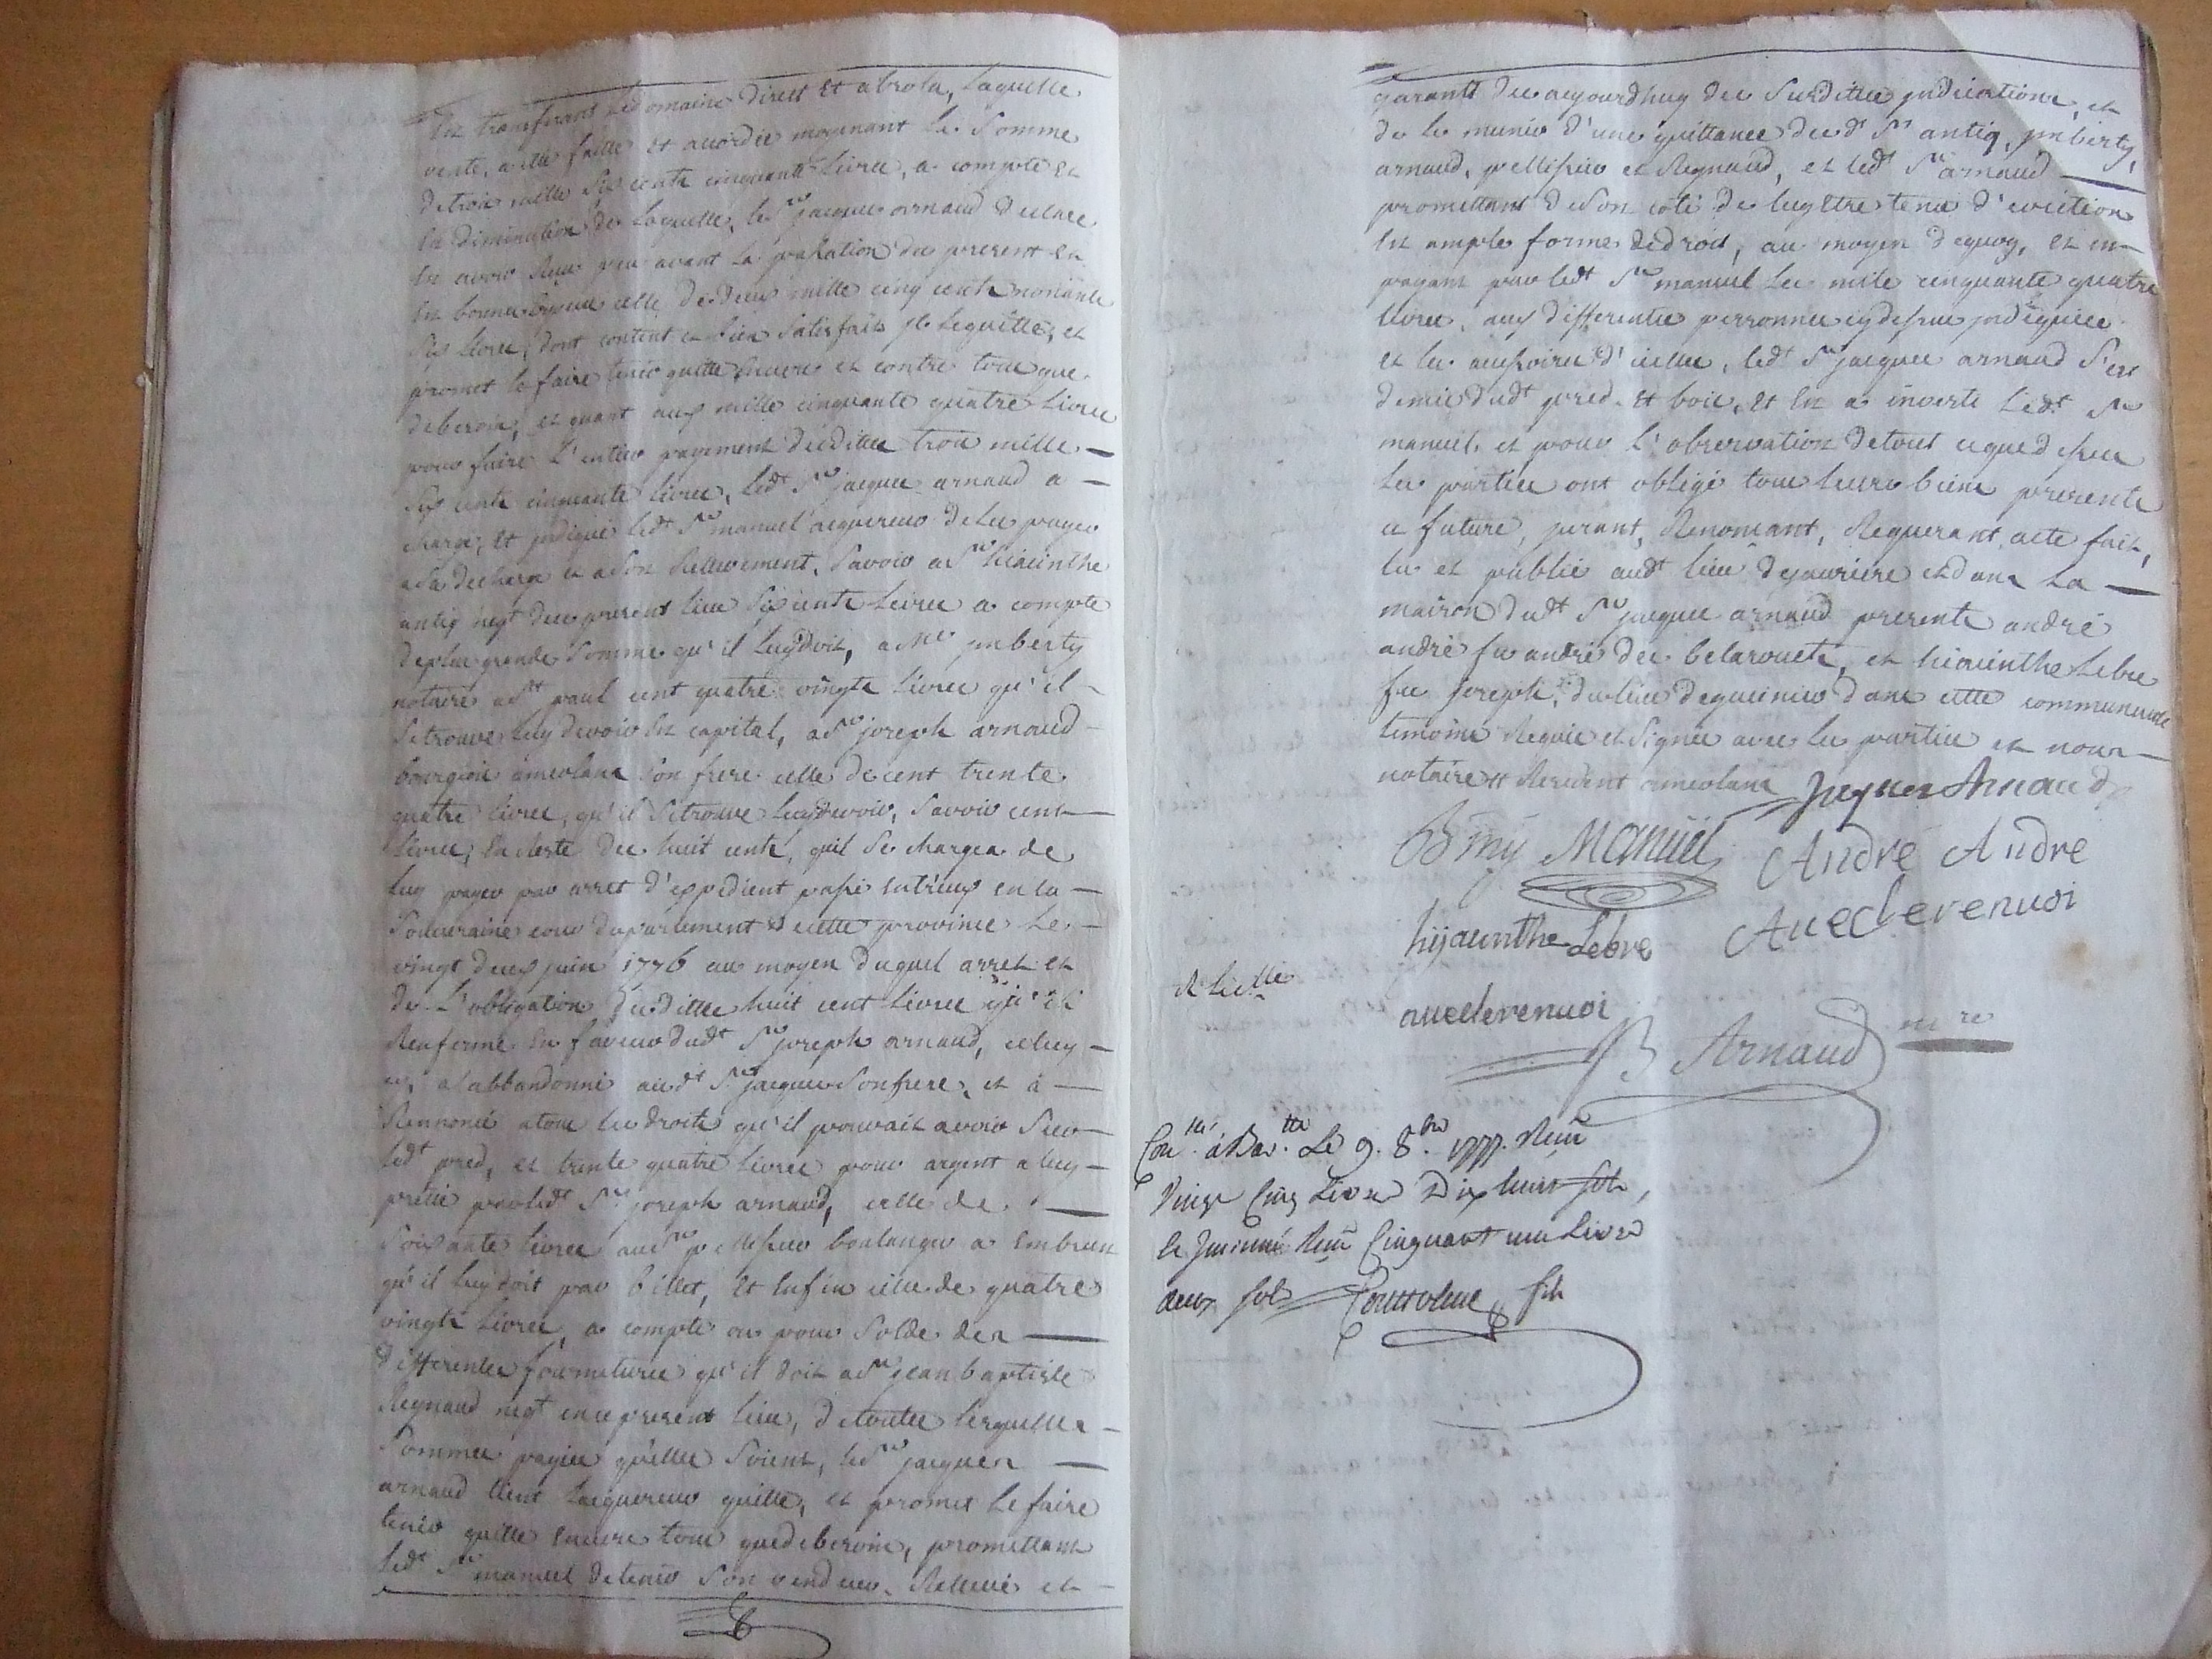 En transferant le domaine direct et absolu, laquelle
vente, a été faitte et accordée moyenant la somme
de trois mille six cents cinquante livres, a compte et
en diminution de laquelle, le sr jacques arnaud declare
en avoir reçu peu avant la passation du present et
en bonnes especes celle de deux mille cinq cents nonante
six livres, dont content et bien satisfait il le quitte, et
promet le faire tenir quitte envers et contre tous que
de besoin, et quant aux mille cinquante quatre livres
pour faire l'entier payement desdittes trois mille
six cents cinquante livres, ledt sr jacques arnaud a
chargé, et indiqué ledt sr manuel acquereur de les payer
a sa decharge et a son relevement, savoir a sr hiacinthe
antiq negt du present lieu six cents livres a compte
de plus grande somme qu'il luy doit, a Me imberty
notaire a st paul cent quatre vingts livres qu'il
se trouve luy devoir en capital, a sr joseph arnaud
bourgeois a meolans son frere celle de cent trente
quatre livres, qu'il se trouve luy devoir, savoir cent
livres, en reste des huit cents, quil se chargea de
luy payer par arret d'expedient passé entr'eux en la
souveraine cour du parlement de cette province le
vingt deux juin 1776 au moyen duquel arret et
de l'obligation desdittes huit cent livres qu'il
renferme en faveur dudt sr joseph arnaud, celuy
cy, a abbandonné audt sr jacques son frere, et à
renoncé a tous les droits qu'il pouvait avoir sur
ledt pred, et trente quatre livres pour argent a luy
preté par ledt sr joseph arnaud, celle de
soixante livres au sr pellissier boulanger a embrun
qu'il luy doit par billet, et enfin celle de quatre
vingts livres, a compte ou pour solde des
differentes fournitures qu'il doit a sr jean baptiste
Reynaud negt en ce present lieu, de toutes lesquelles
sommes payées qu'elles soient, le sr jacques
arnaud tient l'acquereur quitte, et promet le faire
tenir quitte envers tous que de besoin, promettant
ledt sr manuel de tenir son vendeur relevé et
garanti des aujourdhuy des susdittes indications, et
de le munir d'une quittance desdt srs antiq, imberty,
arnaud, pellissier et Reynaud, et ledt sr arnaud
promettant de son coté de luy etre tenu d'eviction
en ample forme de droit, au moyen de quoy, et en
payant par ledt sr manuel les mille cinquante quatre
livres, aux differentes personnes cy dessus indiquées
et les accessoires d'icelles, ledt sr jacques arnaud s'est
demis dudt pred et bois, et en a investi ledt sr
manuel, et pour l'observation de tout ce que dessus
les parties ont obligé tous leurs biens presents
et futurs, jurant, Renonçant, Requerant acte fait,
lu et publié audt lieu de
maison dudt sr jacques arnaud presents andré
andré feu andré des belarouets, et hiacinthe Lebre
feu joseph, du lieu de dans cette communauté
temoins requis et signés avec les parties et nous
notaire Resident a meolans Jaques Arnaud
Bmy Manuel André André
hijacinthe Lebre Avec le renvoi
avec le renvoi
B Arnaud nre
Conllé à Bar.tte Le 9. 8bre 1777. Reçu
Vingt Cinq Livres Dix huit sols,
le Insinué Reçu Cinquant une Livres
deux sols fils